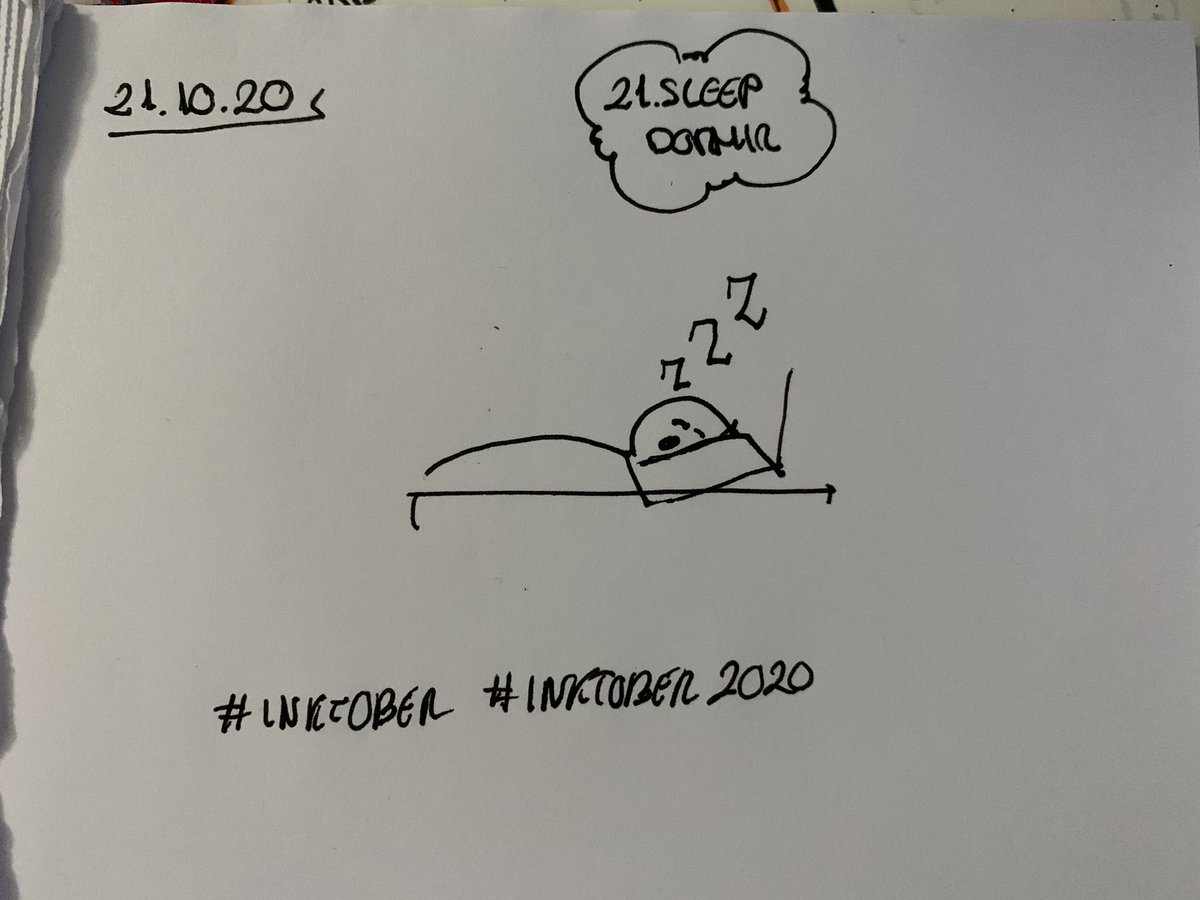 21.10.20
21.SLEEP
DORMIR
Z
Z
Z
#INKTOBER #INKTOBER 2020